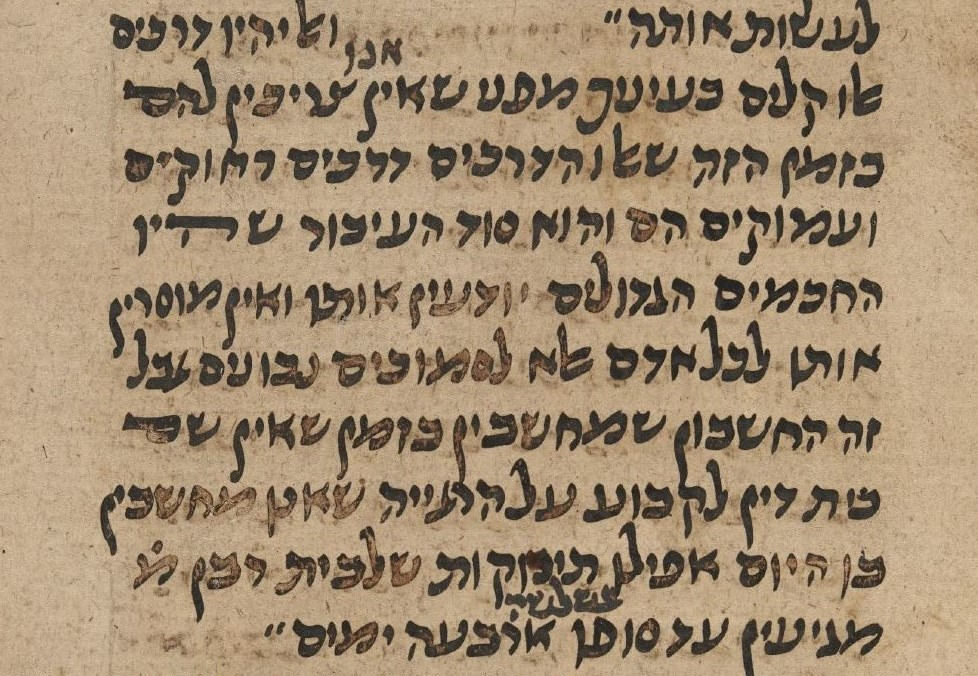 לעשות אותה״ ואל יהיו דרכים
אנו
אלו קלים בעיניך מפני שאין צריכין להם
בזמן הזה שאלו הדרכים דרכים רחוקים
ועמוקים הם והוא סוד העיבור שהיו
החכמים הגדולים יודעין אותו ואין מוסרין
אותו לכל אדם אלא לסמוכים נבונים אבל
זה החשבון שמחשבין בזמן שאין שם
בית דין לקבוע על הראייה שאנו מחשבין
בו היום אפילו תינוקות שלבית רבן מ
בשלשה
מגיעין עד סופו ארבעה ימים״